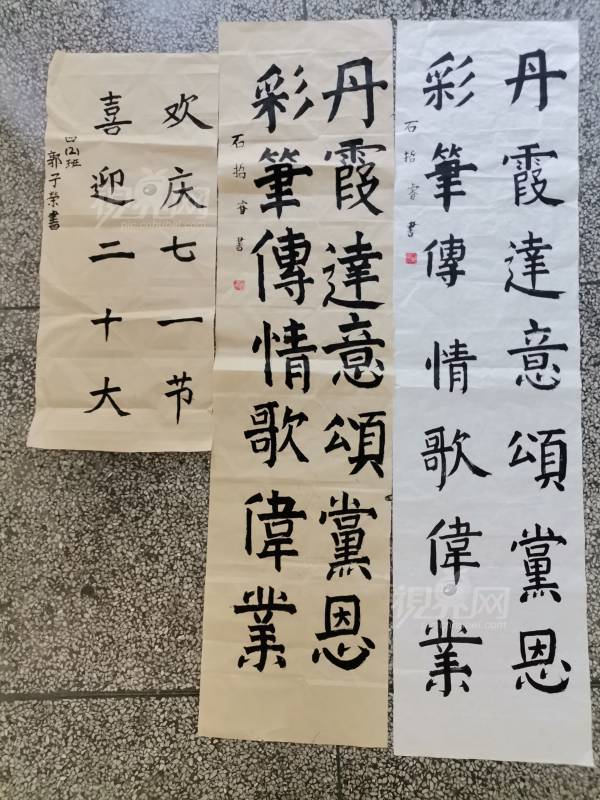 欢庆七一节
喜迎二十大
四(2)班
郭子荣書
丹霞達意頌黨恩
彩筆傳情歌偉業
丹霞達意頌黨恩
彩筆傳情歌偉業
視界网
視界网